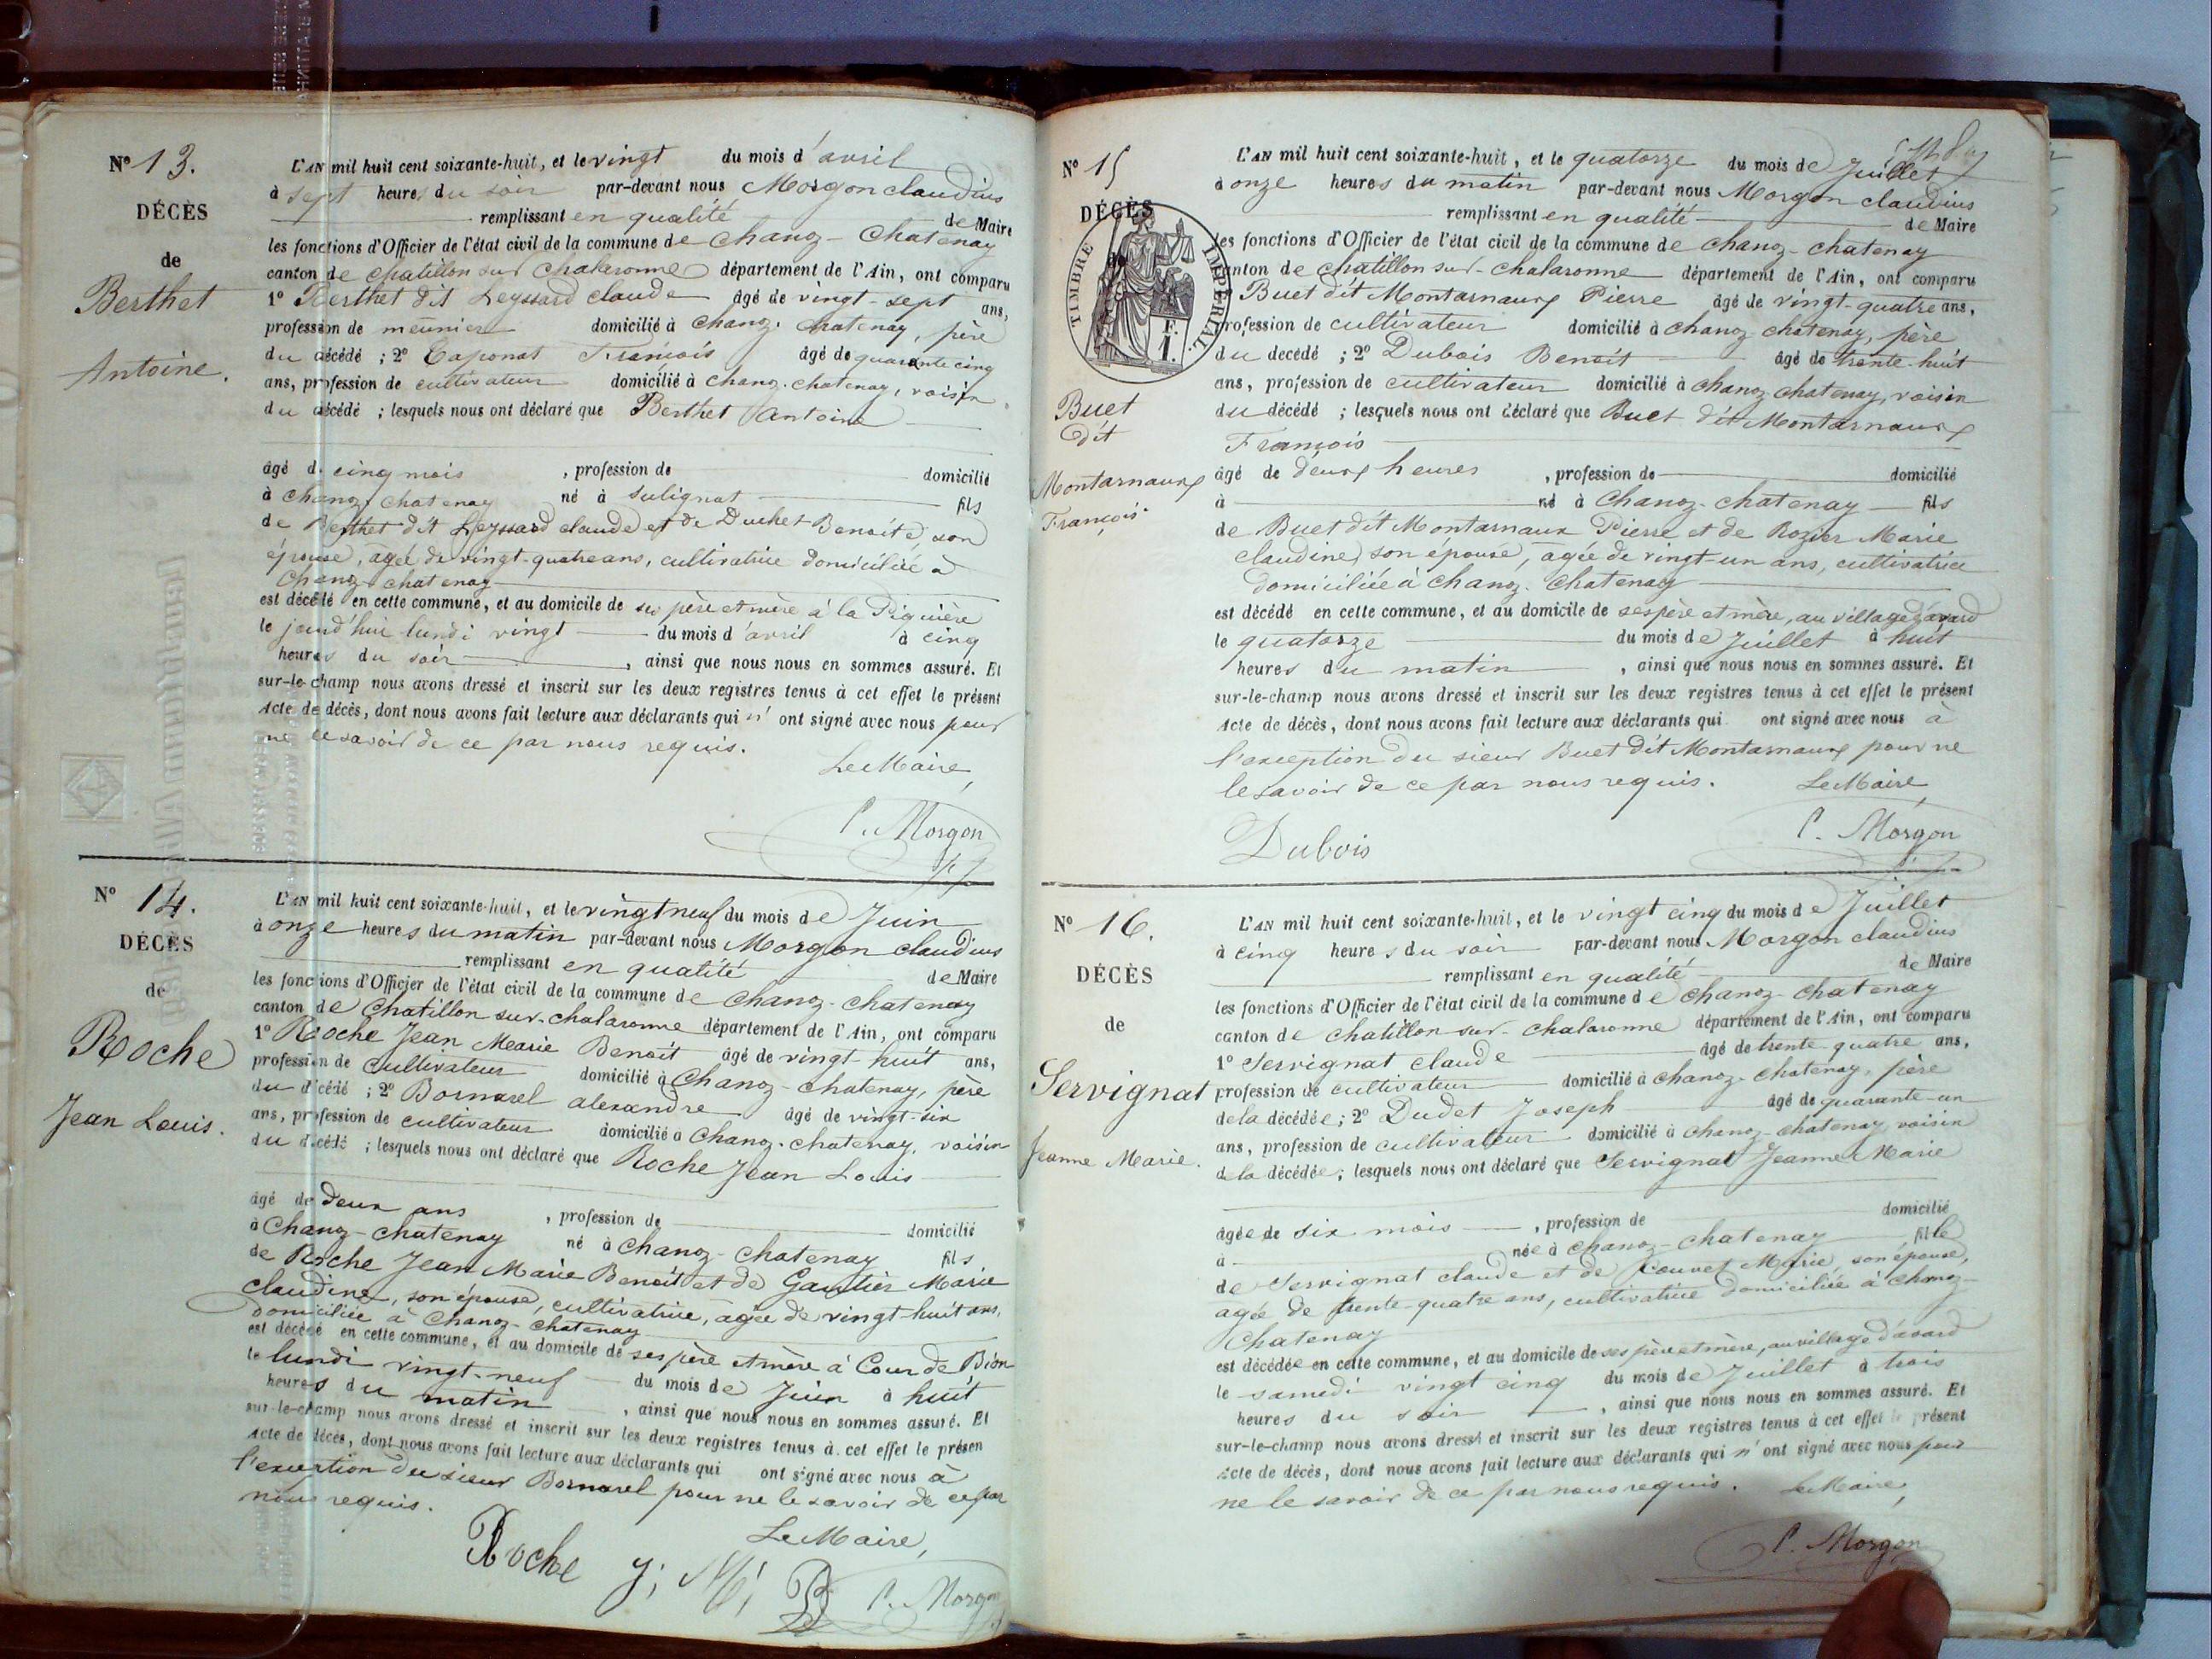 N° 13.
DÉCÈS
de
Berthet
Antoine.
L'AN mil huit cent soixante-huit, et le vingt du mois d'avril
à sept heures du soir par-devant nous Morgon claudius
remplissant en qualité de Maire
les fonctions d'Officier de l'état civil de la commune de Chanoz-Chatenay
canton de chatillon sur Chalaronne département de l'Ain, ont comparu
1° Berthet dit Leyssard claude âgé de vingt-sept ans,
profession de meunier domicilié à Chanoz-chatenay, père
du décédé ; 2° Taponat François âgé de quarante cinq
ans, profession de cultivateur domicilié à Chanoz-chatenay, voisin
du décédé ; lesquels nous ont déclaré que Berthet Antoine
âgé de cinq mois , profession de domicilié
à Chanoz chatenay né à Sulignat fils
de Berthet dit Leyssard claude et de Duchet Benoite, son
épouse, agée de vingt-quatre ans, cultivatrice domiciliée à
Chanoz chatenay
est décédé en cette commune, et au domicile de ses père et mère à la
le jourd'hui lundi vingt du mois d'avril à cinq
heures du soir , ainsi que nous nous en sommes assuré. Et
sur-le-champ nous avons dressé et inscrit sur les deux registres tenus à cet effet le présent
Acte de décès, dont nous avons fait lecture aux déclarants qui n'ont signé avec nous pour
ne le savoir de ce par nous requis.
Le Maire,
C. Morgon
N° 14.
DÉCÈS
de
Roche
Jean Louis.
L'AN mil huit cent soixante-huit, et le vingt neuf du mois de Juin
à onze heures du matin par-devant nous Morgon claudius
remplissant en qualité de Maire
les fonctions d'Officier de l'état civil de la commune de Chanoz-chatenay
canton de Chatillon sur-chalaronne département de l'Ain, ont comparu
1° Roche Jean Marie Benoit âgé de vingt-huit ans,
profession de cultivateur domicilié à Chanoz-chatenay, père
du décédé ; 2° Bornarel alexandre âgé de vingt-six
ans, profession de cultivateur domicilié à Chanoz-chatenay, voisin
du décédé ; lesquels nous ont déclaré que Roche Jean Louis
âgé de deux ans , profession de domicilié
à Chanoz-chatenay né à Chanoz-chatenay fils
de Roche Jean Marie Benoit et de Gautier Marie
claudine, son épouse, cultivatrice, agée de vingt-huit ans,
domiciliée à Chanoz-chatenay
est décédé en cette commune, et au domicile de ses père et mère à Cour de Bion
le lundi vingt-neuf du mois de Juin à huit
heures du matin , ainsi que nous nous en sommes assuré. Et
sur-le-champ nous avons dressé et inscrit sur les deux registres tenus à cet effet le présen
Acte de décès, dont nous avons fait lecture aux déclarants qui ont signé avec nous à
l'exception du sieur Bornarel pour ne le savoir de ce par
nous requis.
Le Maire,
Roche J. M. B C. Morgon
N° 15
DÉCÈS
TIMBRE IMPERIAL.
F.
1.
Buet
dit
Montarnaux
François.
L'AN mil huit cent soixante-huit, et le quatorze du mois de Juillet
à onze heures du matin par-devant nous Morgon claudius
remplissant en qualité de Maire
les fonctions d'Officier de l'état civil de la commune de Chanoz-chatenay
canton de chatillon sur-chalaronne département de l'Ain, ont comparu
Buet dit Montarnaux Pierre âgé de vingt-quatre ans,
profession de cultivateur domicilié à chanoz-chatenay, père
du décédé ; 2° Dubois Benoit âgé de trente-huit
ans, profession de cultivateur domicilié à Chanoz chatenay, voisin
du décédé ; lesquels nous ont déclaré que Buet dit Montarnaux
François
âgé de deux heures , profession de domicilié
à né à Chanoz-chatenay fils
de Buet dit Montarnaux Pierre et de Rozier Marie
claudine, son épouse, agée de vingt-un ans, cultivatrice
domiciliée à Chanoz-Chatenay
est décédé en cette commune, et au domicile de ses père et mère, au village d'avard
le quatorze du mois de Juillet à huit
heures du matin , ainsi que nous nous en sommes assuré. Et
sur-le-champ nous avons dressé et inscrit sur les deux registres tenus à cet effet le présent
Acte de décès, dont nous avons fait lecture aux déclarants qui ont signé avec nous à
l'exception du sieur Buet dit Montarnaux pour ne
le savoir de ce par nous requis. Le Maire,
Dubois C. Morgon
N° 16.
DÉCÈS
de
Servignat
Jeanne Marie.
L'AN mil huit cent soixante-huit, et le vingt cinq du mois de Juillet
à cinq heures du soir par-devant nous Morgon claudius
remplissant en qualité de Maire
les fonctions d'Officier de l'état civil de la commune de Chanoz-chatenay
canton de chatillon-sur-chalaronne département de l'Ain, ont comparu
1° Servignat claude âgé de trente-quatre ans,
profession de cultivateur domicilié à chanoz-chatenay, père
de la décédée ; 2° Dudet Joseph âgé de quarante-un
ans, profession de cultivateur domicilié à Chanoz-chatenay voisin
de la décédée ; lesquels nous ont déclaré que Servignat Jeanne Marie
âgée de six mois , profession de domicilié
à née à Chanoz-chatenay fille
de Servignat claude et de Marie, son épouse,
agée de trente-quatre ans, cultivatrice domiciliée à Chanoz-
Chatenay
est décédée en cette commune, et au domicile de ses père et mère, au village d'avard
le samedi vingt cinq du mois de Juillet à trois
heures du soir , ainsi que nous nous en sommes assuré. Et
sur-le-champ nous avons dressé et inscrit sur les deux registres tenus à cet effet le présent
Acte de décès, dont nous avons fait lecture aux déclarants qui n'ont signé avec nous pour
ne le savoir de ce par nous requis. Le Maire,
C. Morgon